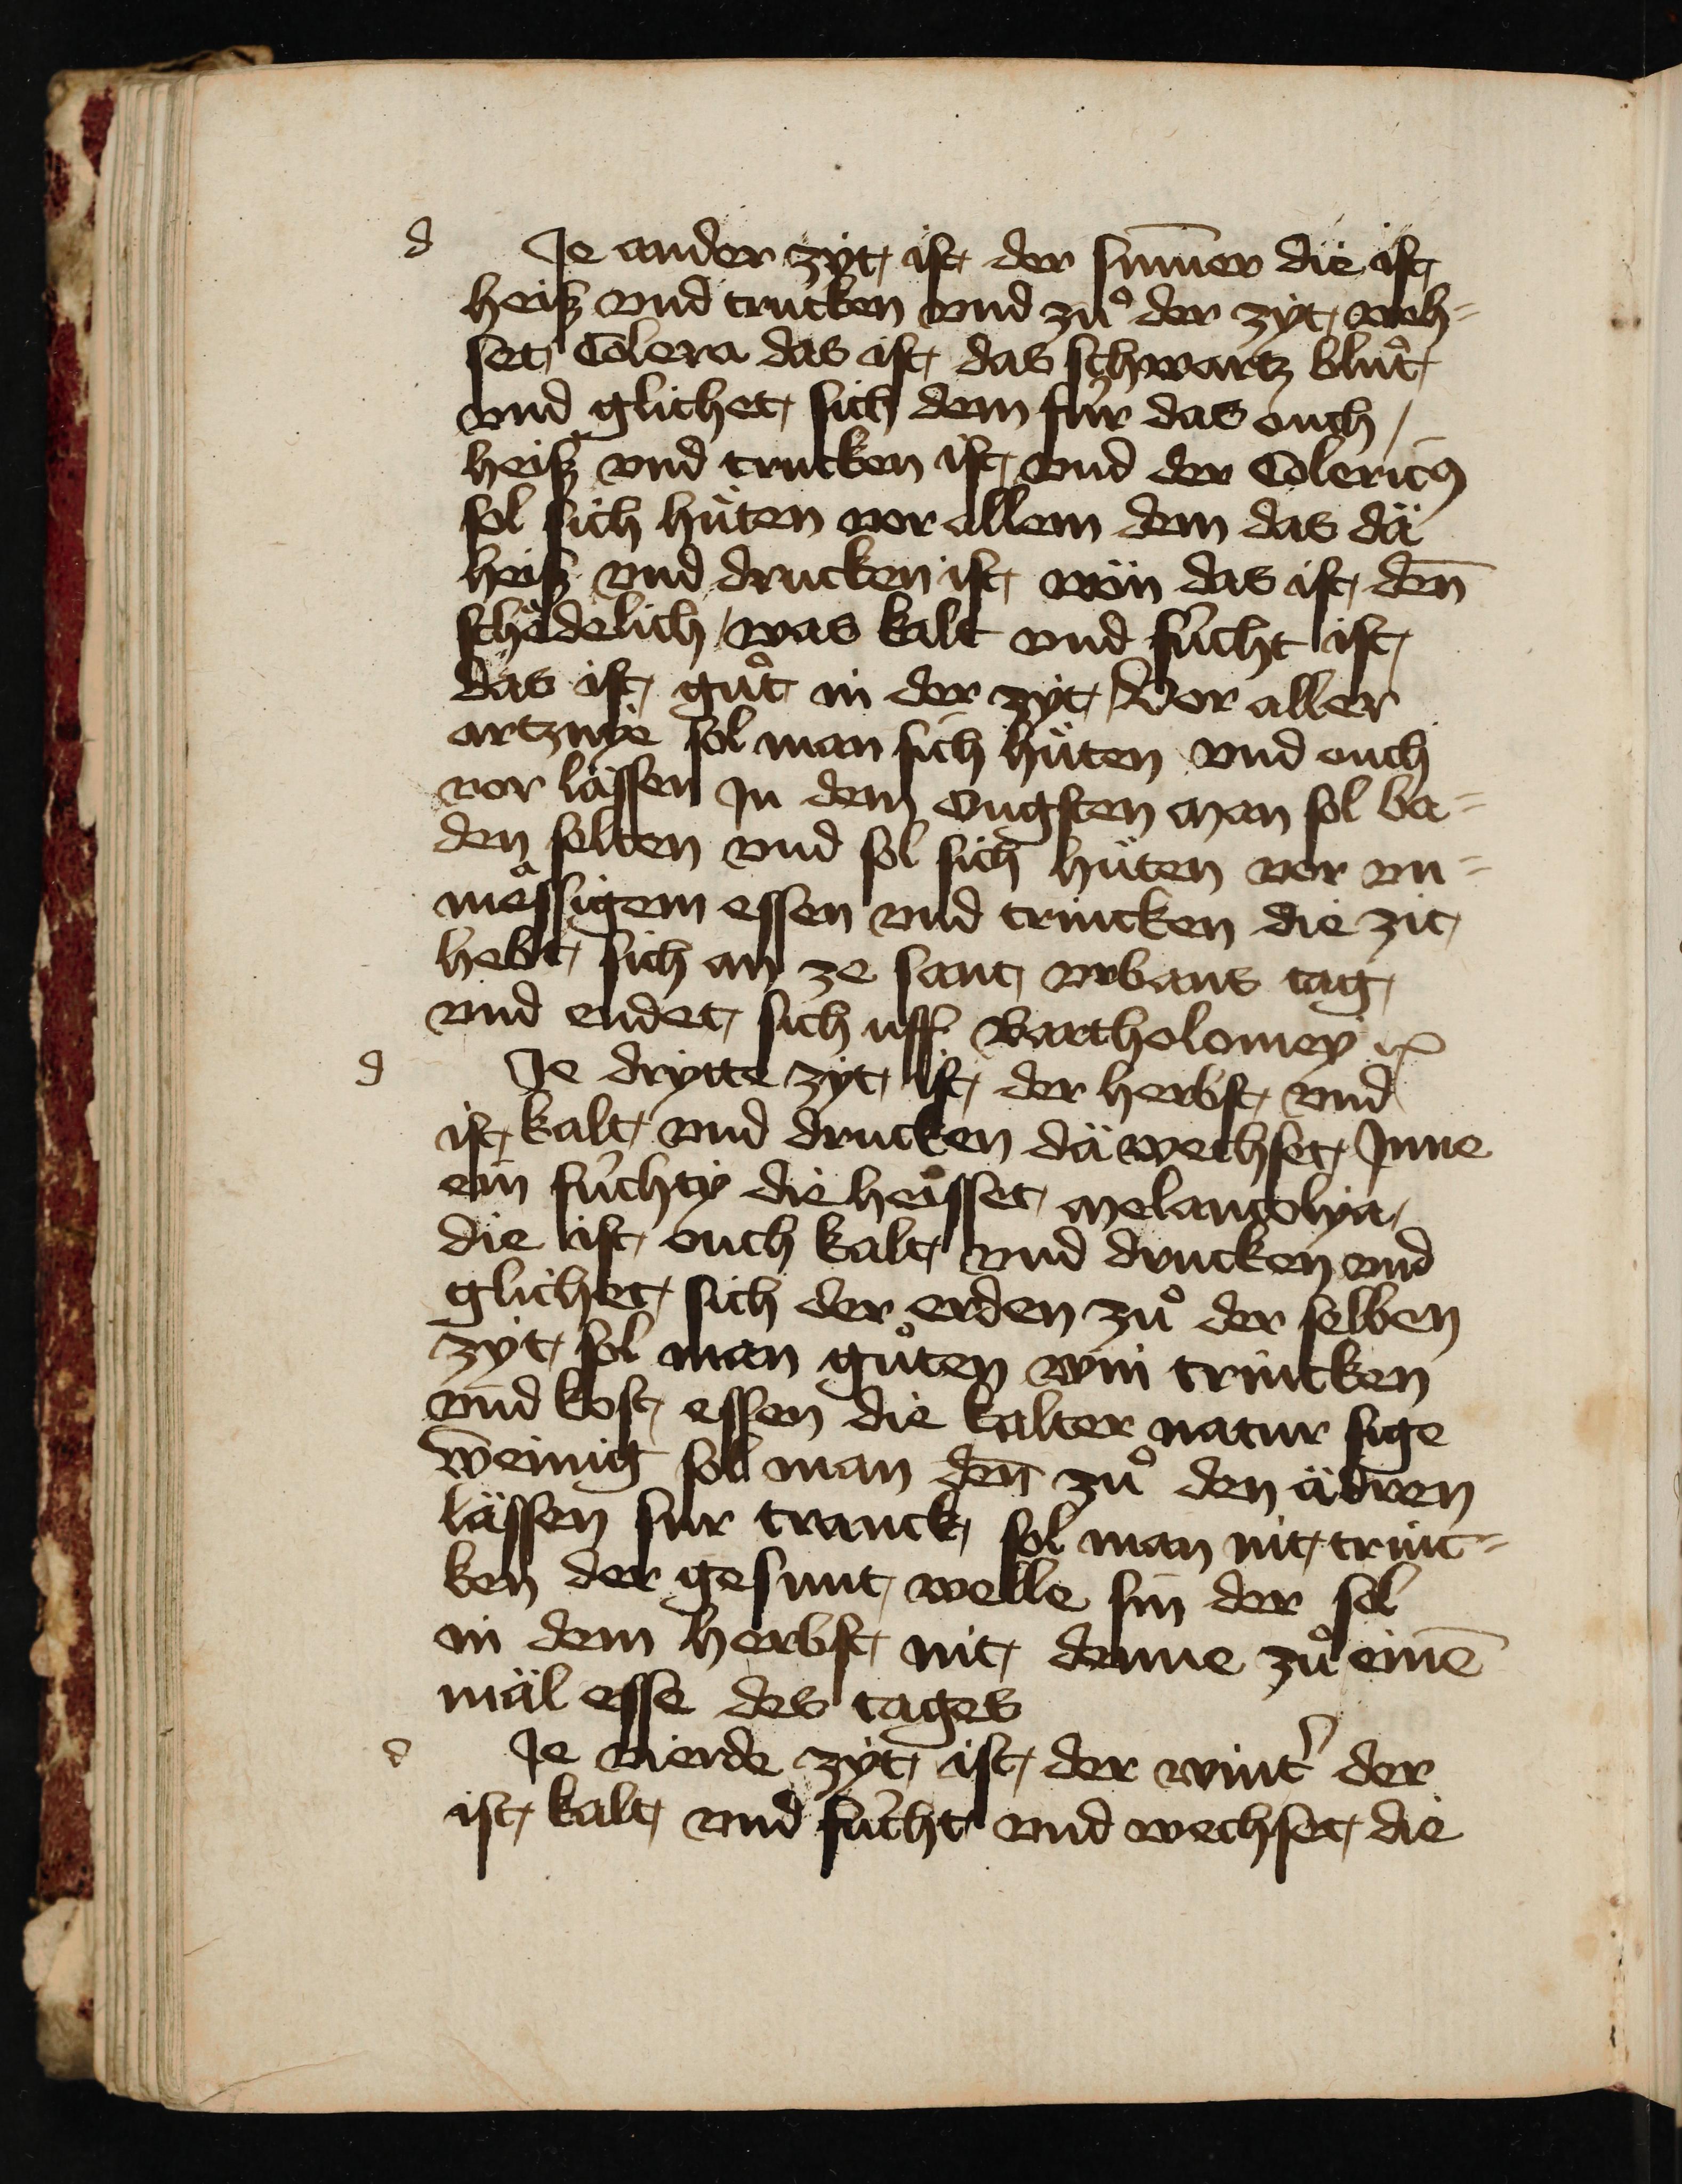 d Je ander zÿt ist der sum̄er die ist
heiß vnd trucken vnd zuͦ der zÿt weh=
set Colera das ist das schwartz bluͦt
vnd glichet sich dem für das ouch /
heiß vnd trucken ist vnd der Colericꝰ
sol sich hüten vor allem dem das dä
heiß vnd drucken ist win das ist den̄
schädelich / was kalt vnd fücht ist
das ist guͦt in der zÿt / Vor aller
artznÿe sol man sich hüten vnd ouch
vor lässen Jn dem ougsten man sol ba=
den selten vnd sol sich hüten vor vn=
mässigem essen vnd trincken die zit
hebt sich an ze sant vrbans tag
vnd endet sich uff Bartholomey
d Je drytte zÿt ist der herbst vnd
ist kalt vnd drucken dä wechset Jnne
ein füchty die heisset melancolya
die ist ouch kalt vnd drucken vnd
glichet sich der erden zuͦ der selben
zÿt sol man guͦten win trincken
vnd kost essen die kalter natur sige
wenig sol man den̄ zuͦ den ädren
lässen sur tranck sol man nit trinc=
ken der gesunt welle sin der sol
in dem herbst nit denne zuͦ einē
mäl esse des tages
d Je vierde zÿt ist der wint' der
ist kalt vnd fücht vnd wechset die